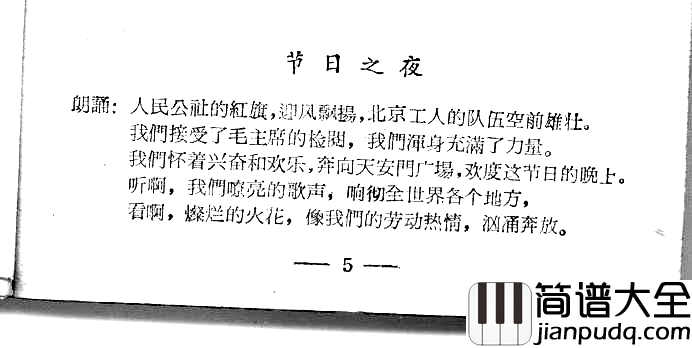 节日之夜
朗誦：人民公社的紅旗，迎风飘揚，北京工人的队伍空前雄壮。
我們接受了毛主席的检閱，我們渾身充滿了力量。
我們怀着兴奋和欢乐，奔向天安門广場，欢度这节日的晚上。
听啊，我們嘹亮的歌声，响彻全世界各个地方，
看啊，燦烂的火花，像我們的劳动热情，汹涌奔放。
— 5 —
简谱大全
jianpudq.com